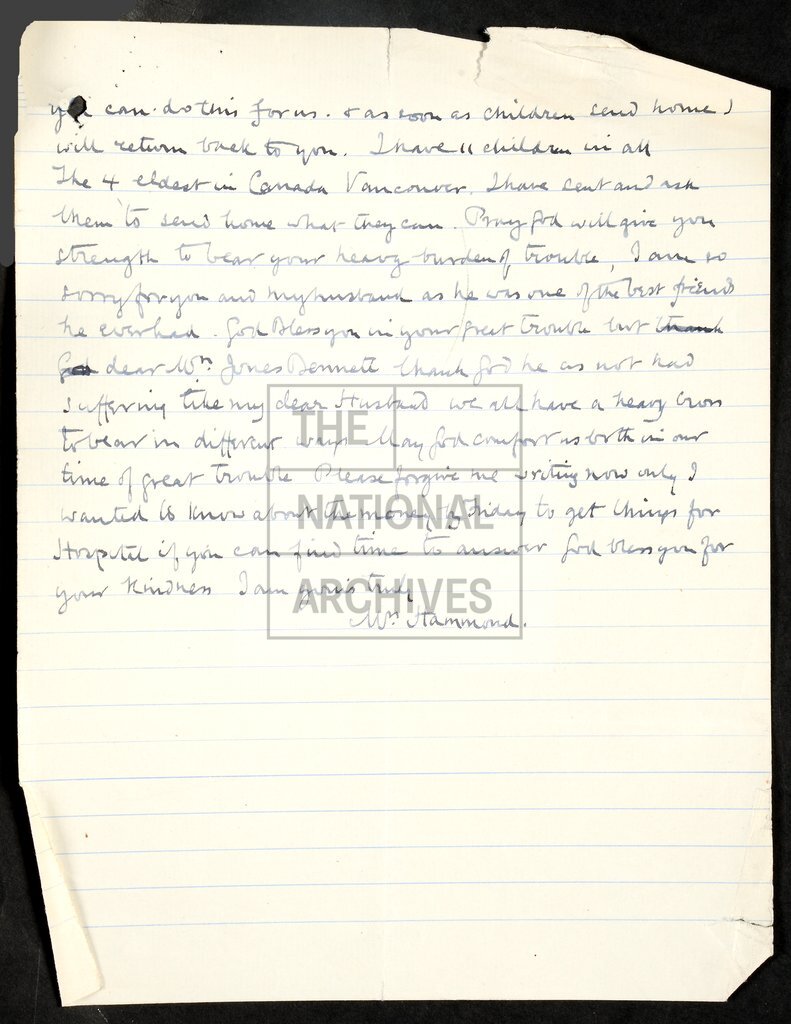 you can do this for us. & as soon as children send home I
will return back to you. I have 11 children in all
The 4 eldest in Canada Vancouver. I have sent and ask
them to send home what they can. Pray God will give you
strength to bear your heavy burden of trouble, I am so
sorry for you and my husband as he was one of the best friends
he ever had. God Bless you in your great trouble but thank
God dear Mrs Jones Bennett thank God he as not had
suffering like my dear Husband we all have a heavy Cross
to bear in different ways May God comfort us both in our
time of great trouble Please forgive me writing now only I
wanted to know about the money by Friday to get things for
Hospital if you can find time to answer God bless you for
your Kindness I am yours truly
Mrs Hammond.
THE
NATIONAL
ARCHIVES